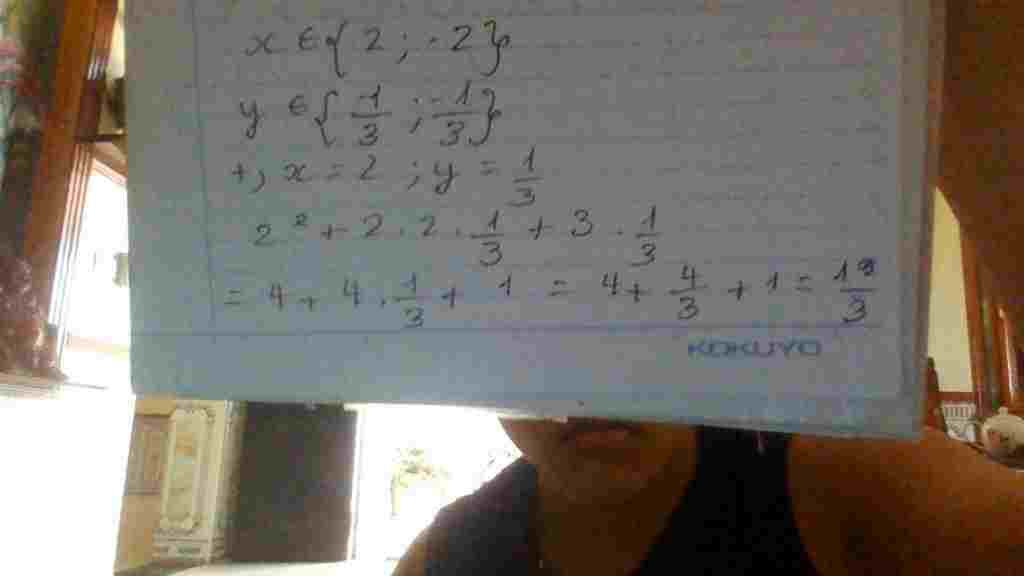 x ∈ {2 ; -2}
y ∈ {1/3 ; -1/3}
+, x = 2 ; y = 1/3
2² + 2 . 2 . 1/3 + 3 . 1/3
= 4 + 4 . 1/3 + 1 = 4 + 4/3 + 1 = 19/3
KOKUYO